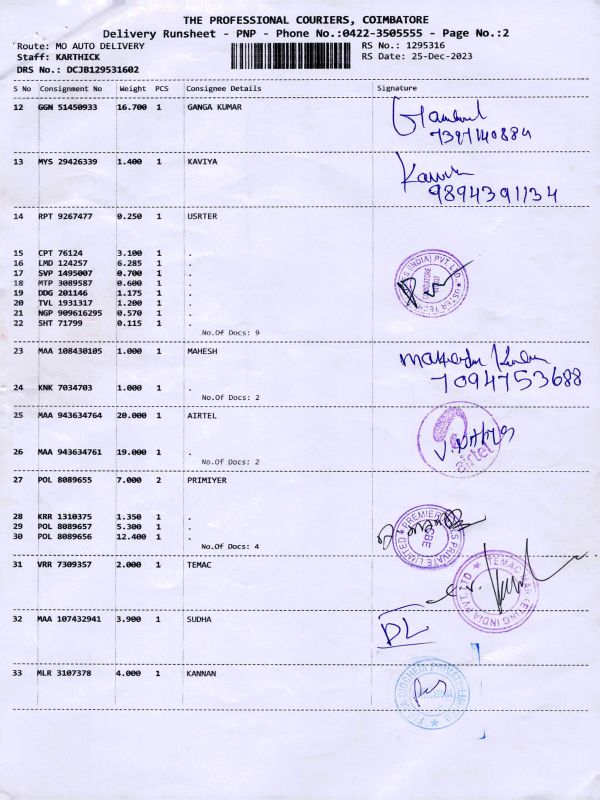 THE PROFESSIONAL COURIERS, COIMBATORE
Delivery Runsheet - PNP - Phone No.:0422-3505555 - Page No.:2
Route: MO AUTO DELIVERY RS No.: 1295316
Staff: KARTHICK RS Date: 25-Dec-2023
DRS No.: DCJB129531602
S No Consignment No Weight PCS Consignee Details Signature
12 GGN 51450933 16.700 1 GANGA KUMAR
7397140884
13 MYS 29426339 1.400 1 KAVIYA
9894391134
14 RPT 9267477 0.250 1 USRTER
15 CPT 76124 3.100 1 .
16 LMD 124257 6.285 1 .
17 SVP 1495007 0.700 1 .
18 MTP 3089587 0.600 1 .
19 DDG 201146 1.175 1 .
20 TVL 1931317 1.200 1 .
21 NGP 909616295 0.570 1 .
22 SHT 71799 0.115 1 .
No.Of Docs: 9
23 MAA 108430105 1.000 1 MAHESH
7094753688
24 KNK 7034703 1.000 1 .
No.Of Docs: 2
25 MAA 943634764 20.000 1 AIRTEL
airtel
26 MAA 943634761 19.000 1 .
No.Of Docs: 2
27 POL 8089655 7.000 2 PRIMIYER
28 KRR 1310375 1.350 1 .
29 POL 8089657 5.300 1 .
30 POL 8089656 12.400 1 .
No.Of Docs: 4
PRIVATE LIMITED
31 VRR 7309357 2.000 1 TEMAC
TEMAC INDIA PVT LTD
32 MAA 107432941 3.900 1 SUDHA
DL
33 MLR 3107378 4.000 1 KANNAN